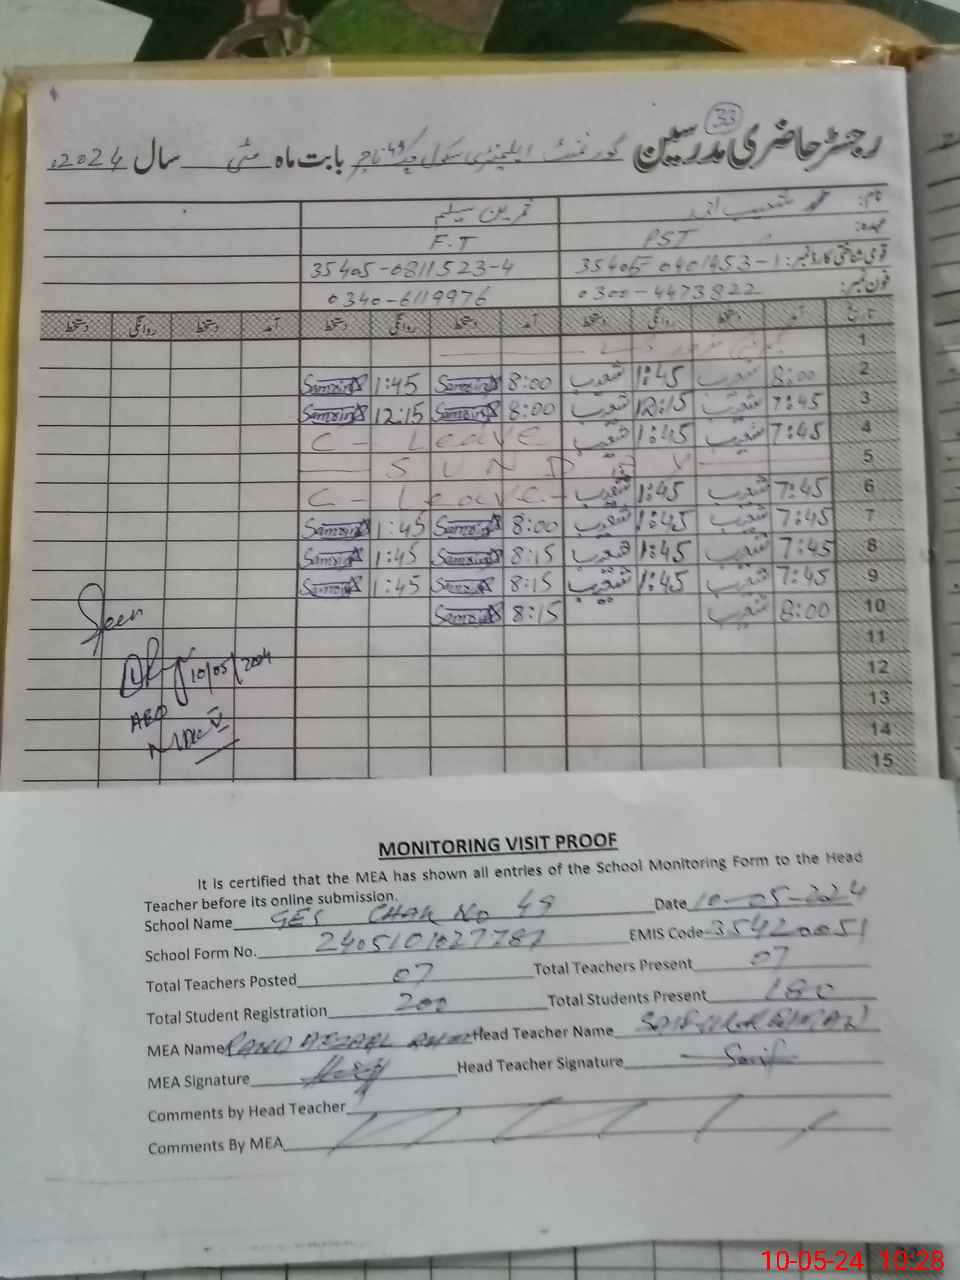 33
رجسٹر حاضری مدرسین گورنمنٹ ایلیمنٹری سکول چک 49 بابت ماہ مئی سال 2024ء
نام:
عہدہ: PST F.T
قومی شناختی کارڈ نمبر: 35405-0401453-1 35405-0811523-4
فون نمبر: 0300-4473822 0340-6119976
تاریخ آمد دستخط روانگی دستخط آمد دستخط روانگی دستخط آمد دستخط روانگی دستخط
1
2 8:00 شعیب 1:45 شعیب 8:00 1:45
3 7:45 شعیب 12:15 شعیب 8:00 12:15
4 7:45 شعیب 1:45 شعیب C - Leave
5 SUNDAY
6 7:45 شعیب 1:45 شعیب C - Leave
7 7:45 شعیب 1:45 شعیب 8:00 1:45
8 7:45 شعیب 1:45 شعیب 8:15 1:45
9 7:45 شعیب 1:45 شعیب 8:15 1:45
10 8:00 شعیب 8:15
11
12
13
14
15
Seen
10/05/2024
AEO
MONITORING VISIT PROOF
It is certified that the MEA has shown all entries of the School Monitoring Form to the Head
Teacher before its online submission.
School Name GES CHAK No 49 Date 10-05-2024
School Form No. 2405101027787 EMIS Code 35420051
Total Teachers Posted 07 Total Teachers Present 07
Total Student Registration 200 Total Students Present 180
MEA Name Head Teacher Name
MEA Signature Head Teacher Signature
Comments by Head Teacher
Comments By MEA
10-05-24 10:28